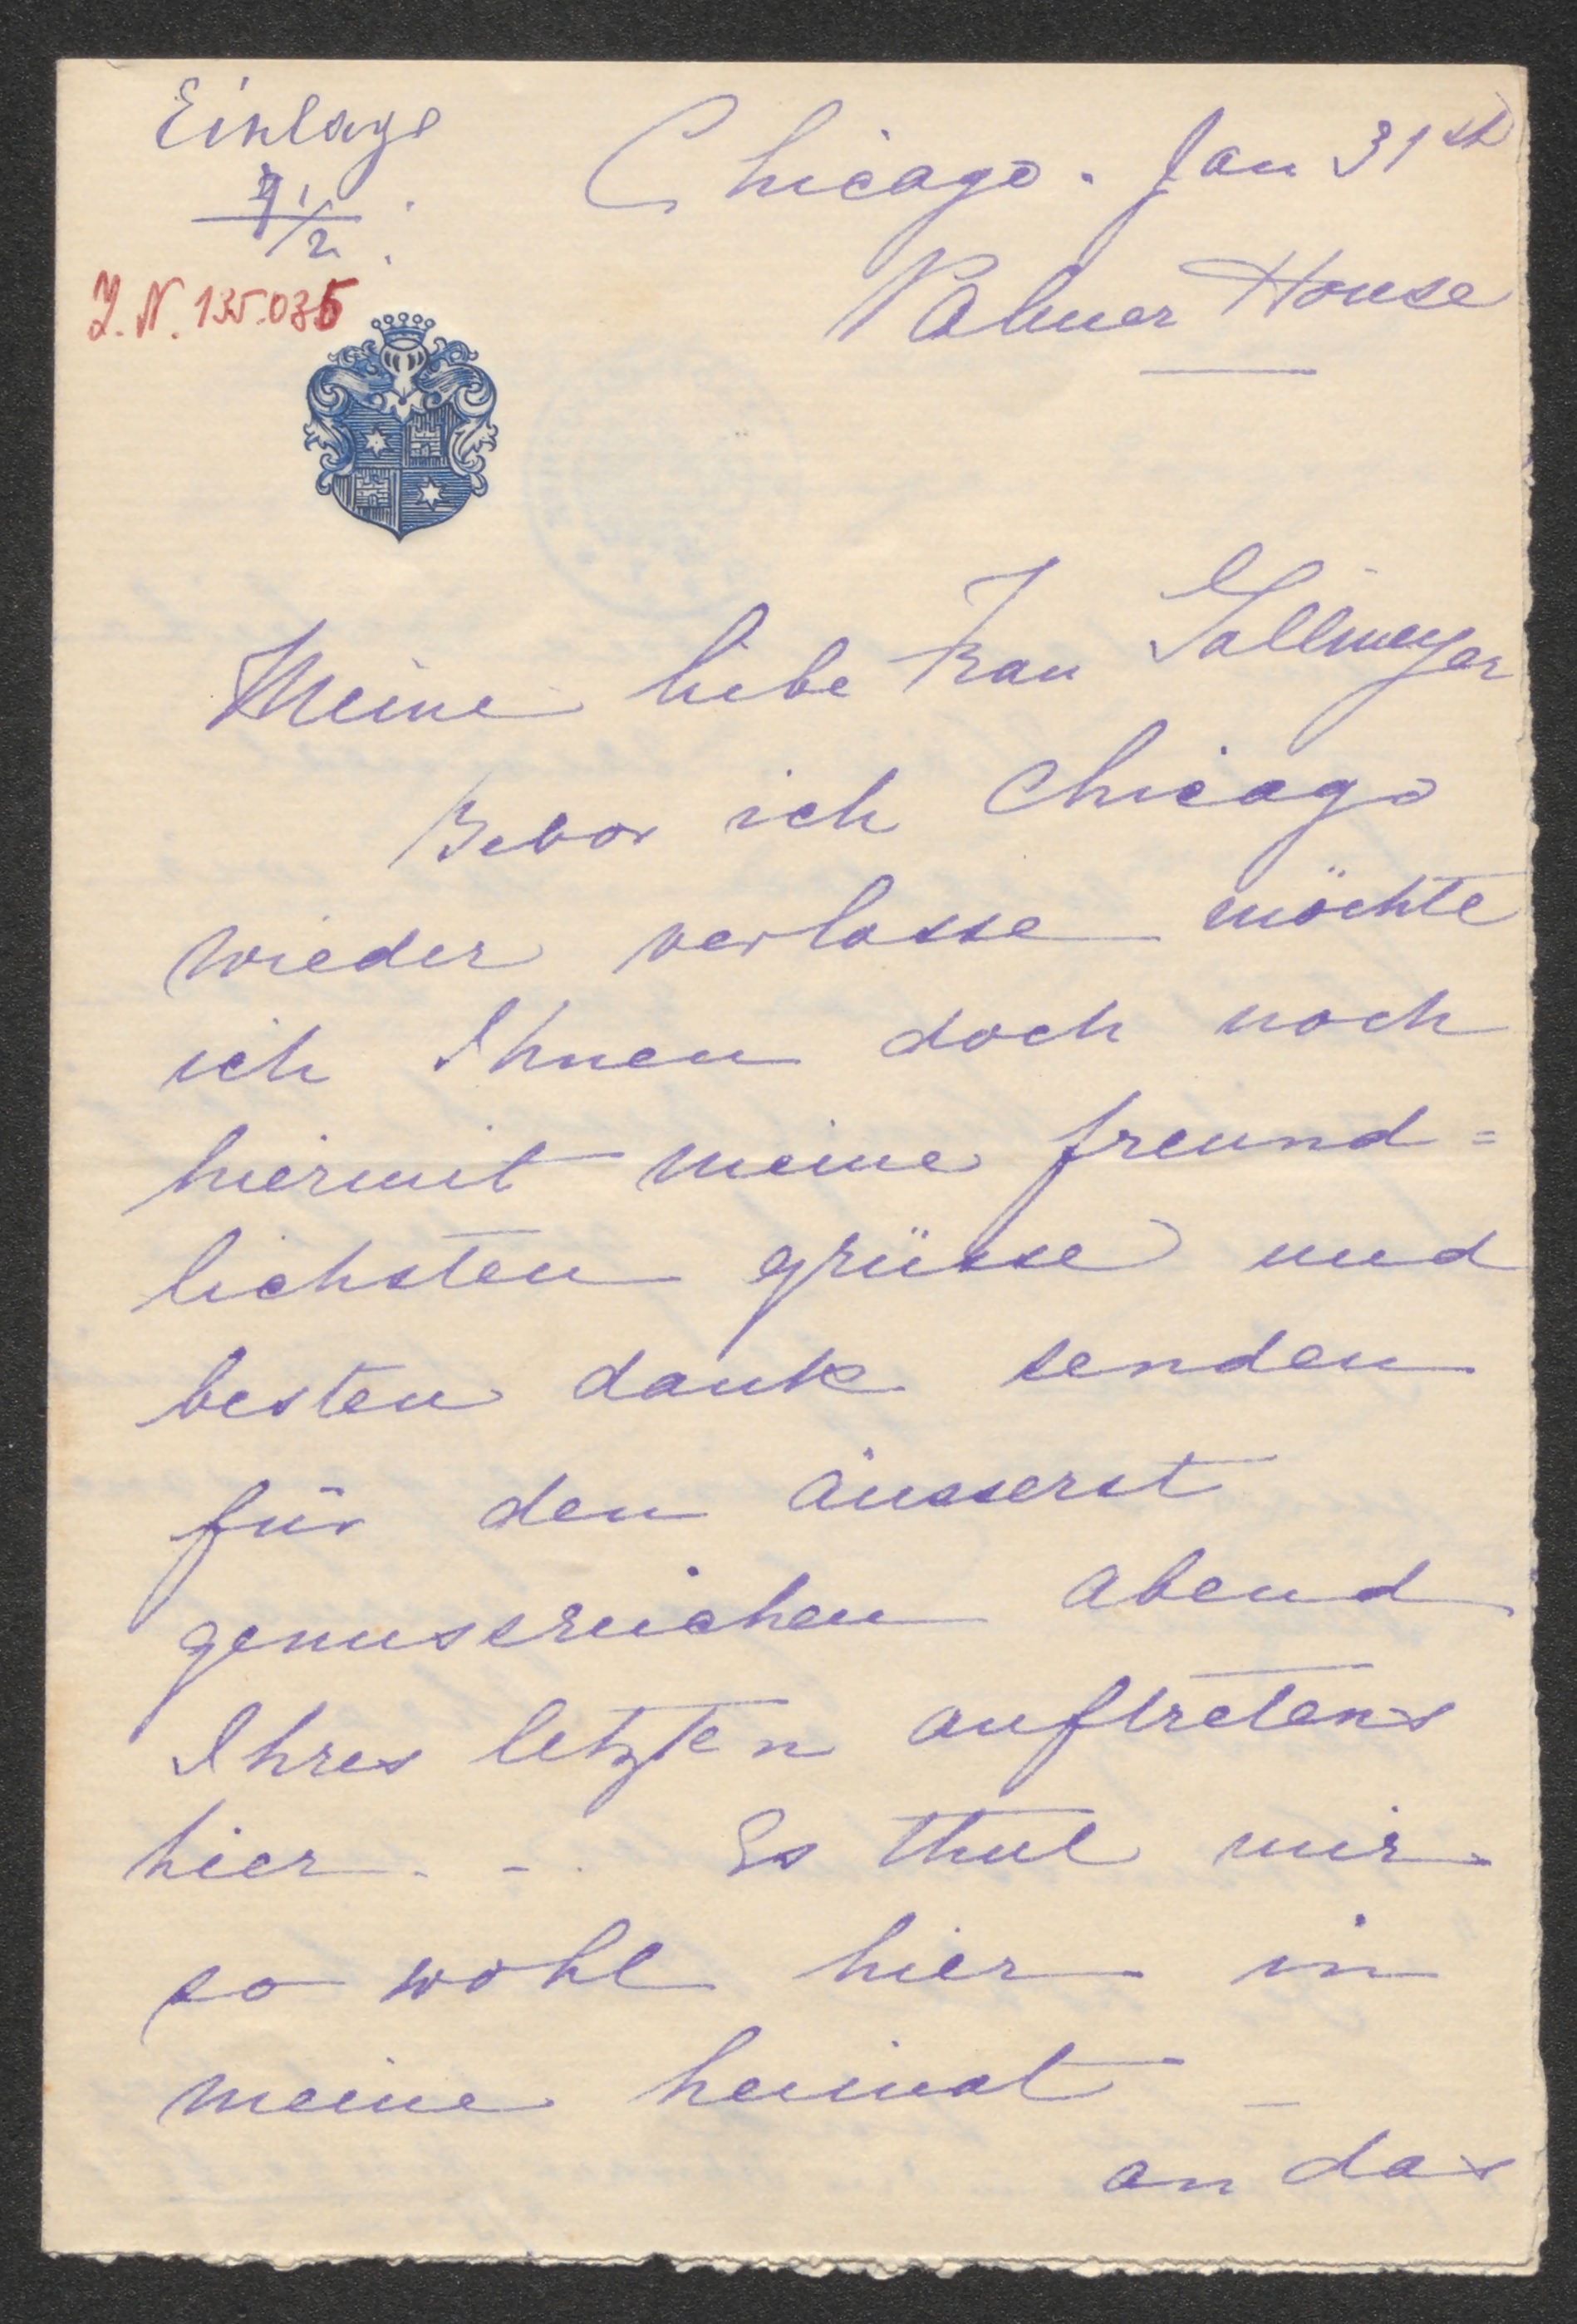 Einlage
1/2
J.N. 135.035
Chicago. Jan 31st
Palmer House
Meine liebe Frau Gallmeyer
Bevor ich Chicago
wieder verlasse möchte
ich Ihnen doch noch
hiermit meine freund=
lichsten grüsse und
besten dank senden
für den äusserst
genussreichen abend
Ihres letzten auftretens
hier. -. Es thut mir
so wohl hier in
meine heimat –
an das